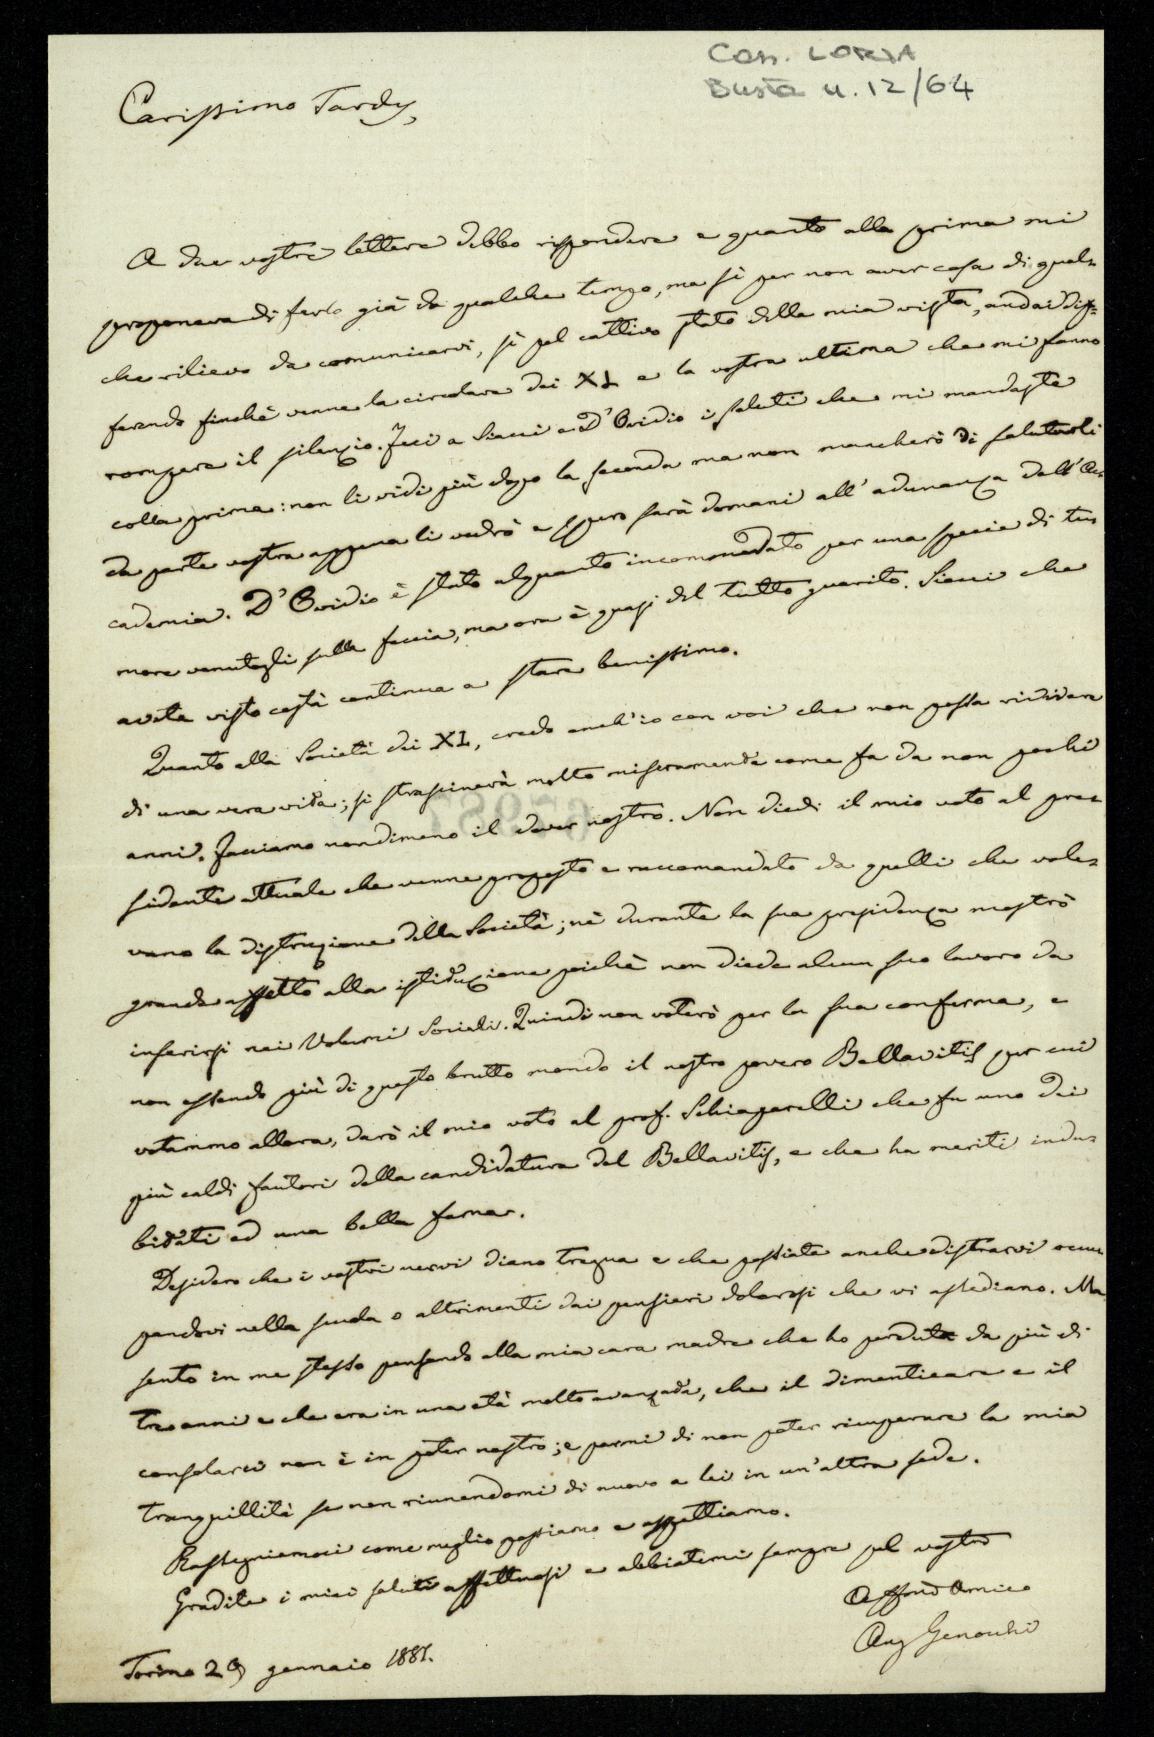 Cass. LORIA
Busta n. 12/64
Carissimo Tardy,
A due vostre lettere debbo rispondere e quanto alla prima mi
proponeva di farlo già da qualche tempo, ma sì per non aver cosa di qual-
che rilievo da comunicarvi, sì pel cattivo stato della mia vista, andai dif-
ferendo finchè venne la circolare dei XL e la vostra ultima che mi fanno
rompere il silenzio. Feci a Siacci e D'Ovidio i saluti che mi mandaste
colla prima: non li vidi più dopo la seconda ma non mancherò di salutarli
da parte vostra appena li vedrò e spero sarà domani all'adunanza dell'Ac-
cademia. D'Ovidio è stato alquanto incommodato per una specie di tu-
more venutogli sulla faccia, ma ora è quasi del tutto guarito. Siacci che
avete visto costà continua a stare benissimo.
Quanto alla Società dei XL, credo anch'io con voi che non possa rivivere
di una vera vita; si strascinerà molto miseramente come fa da non pochi
anni. Facciamo nondimeno il dover nostro. Non diedi il mio voto al pre-
sidente attuale che venne proposto e raccomandato da quelli che vole-
vano la distruzione della Società; nè durante la sua presidenza mostrò
grande affetto alla istituzione poichè non diede alcun suo lavoro da
inserirsi nei Volumi Sociali. Quindi non voterò per la sua conferma, e
non essendo più di questo brutto mondo il nostro povero Bellavitis per cui
votammo allora, darò il mio voto al prof. Schiaparelli che fu uno dei
più caldi fautori della candidatura del Bellavitis, e che ha meriti indu-
bitati ed una bella fama.
Desidero che i vostri nervi diano tregua e che possiate anche distrarvi occu-
pandovi nella scuola o altrimenti dai pensieri dolorosi che vi assediano. Ma
sento in me stesso pensando alla mia cara madre che ho perduta da più di
tre anni e che era in una età molto avanzata, che il dimenticare e il
consolarci non è in poter nostro; e parmi di non poter ricuperare la mia
tranquillità se non riunendomi di nuovo a lei in un'altra sede.
Rassegniamoci come meglio possiamo e aspettiamo.
Gradite i miei saluti affettuosi e abbiatemi sempre pel vostro
Affmo Amico
Ang Genocchi
Torino 29 gennaio 1881.